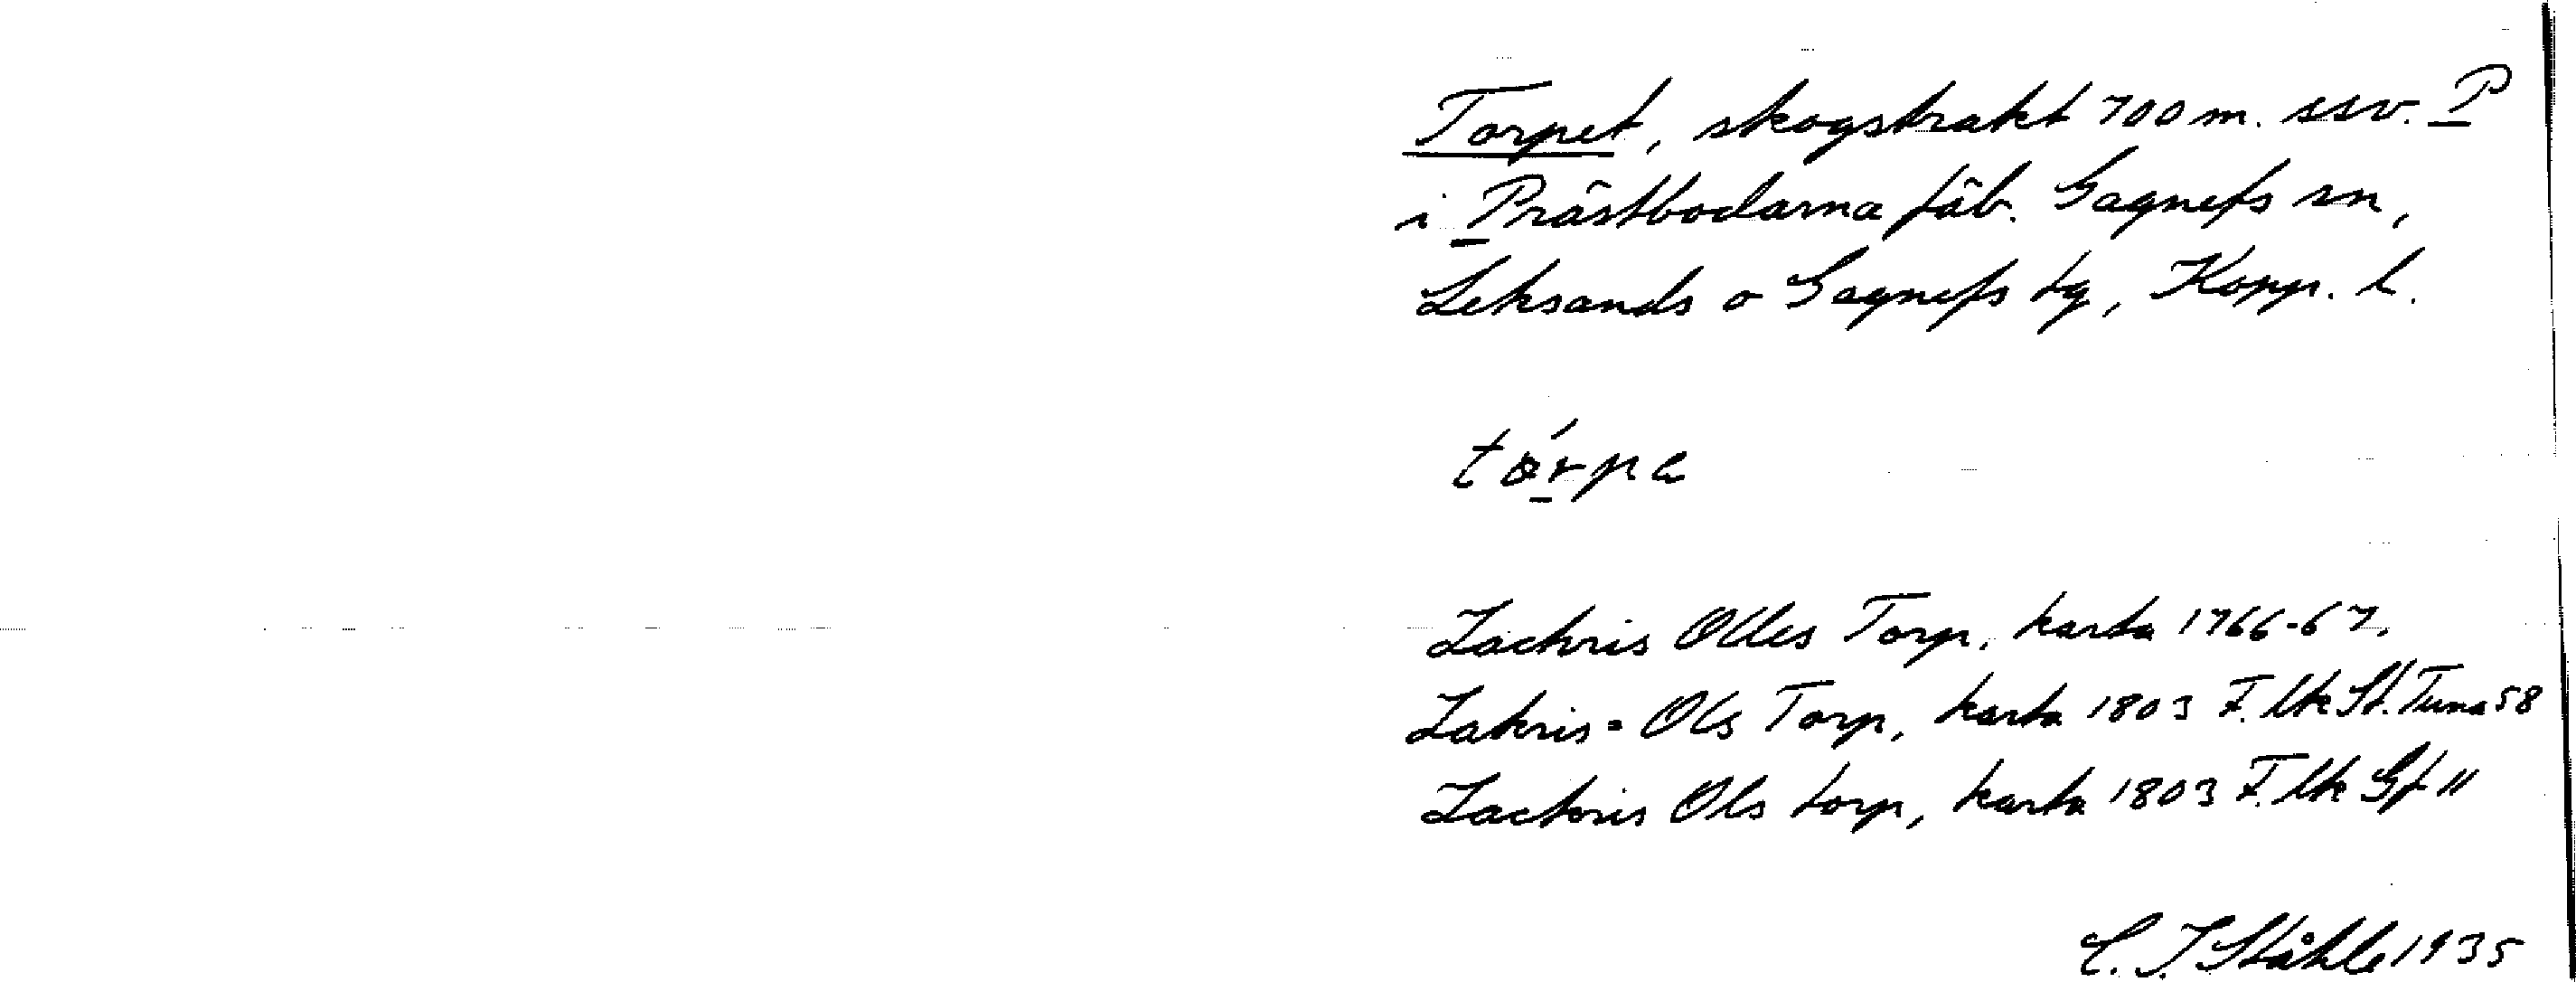 Torpet, skogstrakt 700 m. ssv. P
i Prästbodarna fäb. Gagnefs sn,
Leksands o Gagnefs tg, Kopp. l.
tórpe
Zachris Olles Torp, karta 1766-67.
Zakris = Ols Torp, karta 1803 F. lk St. Tuna 58
Zachris Ols torp, karta 1803 F. lk Gf 11
C. I. Ståhle 1935